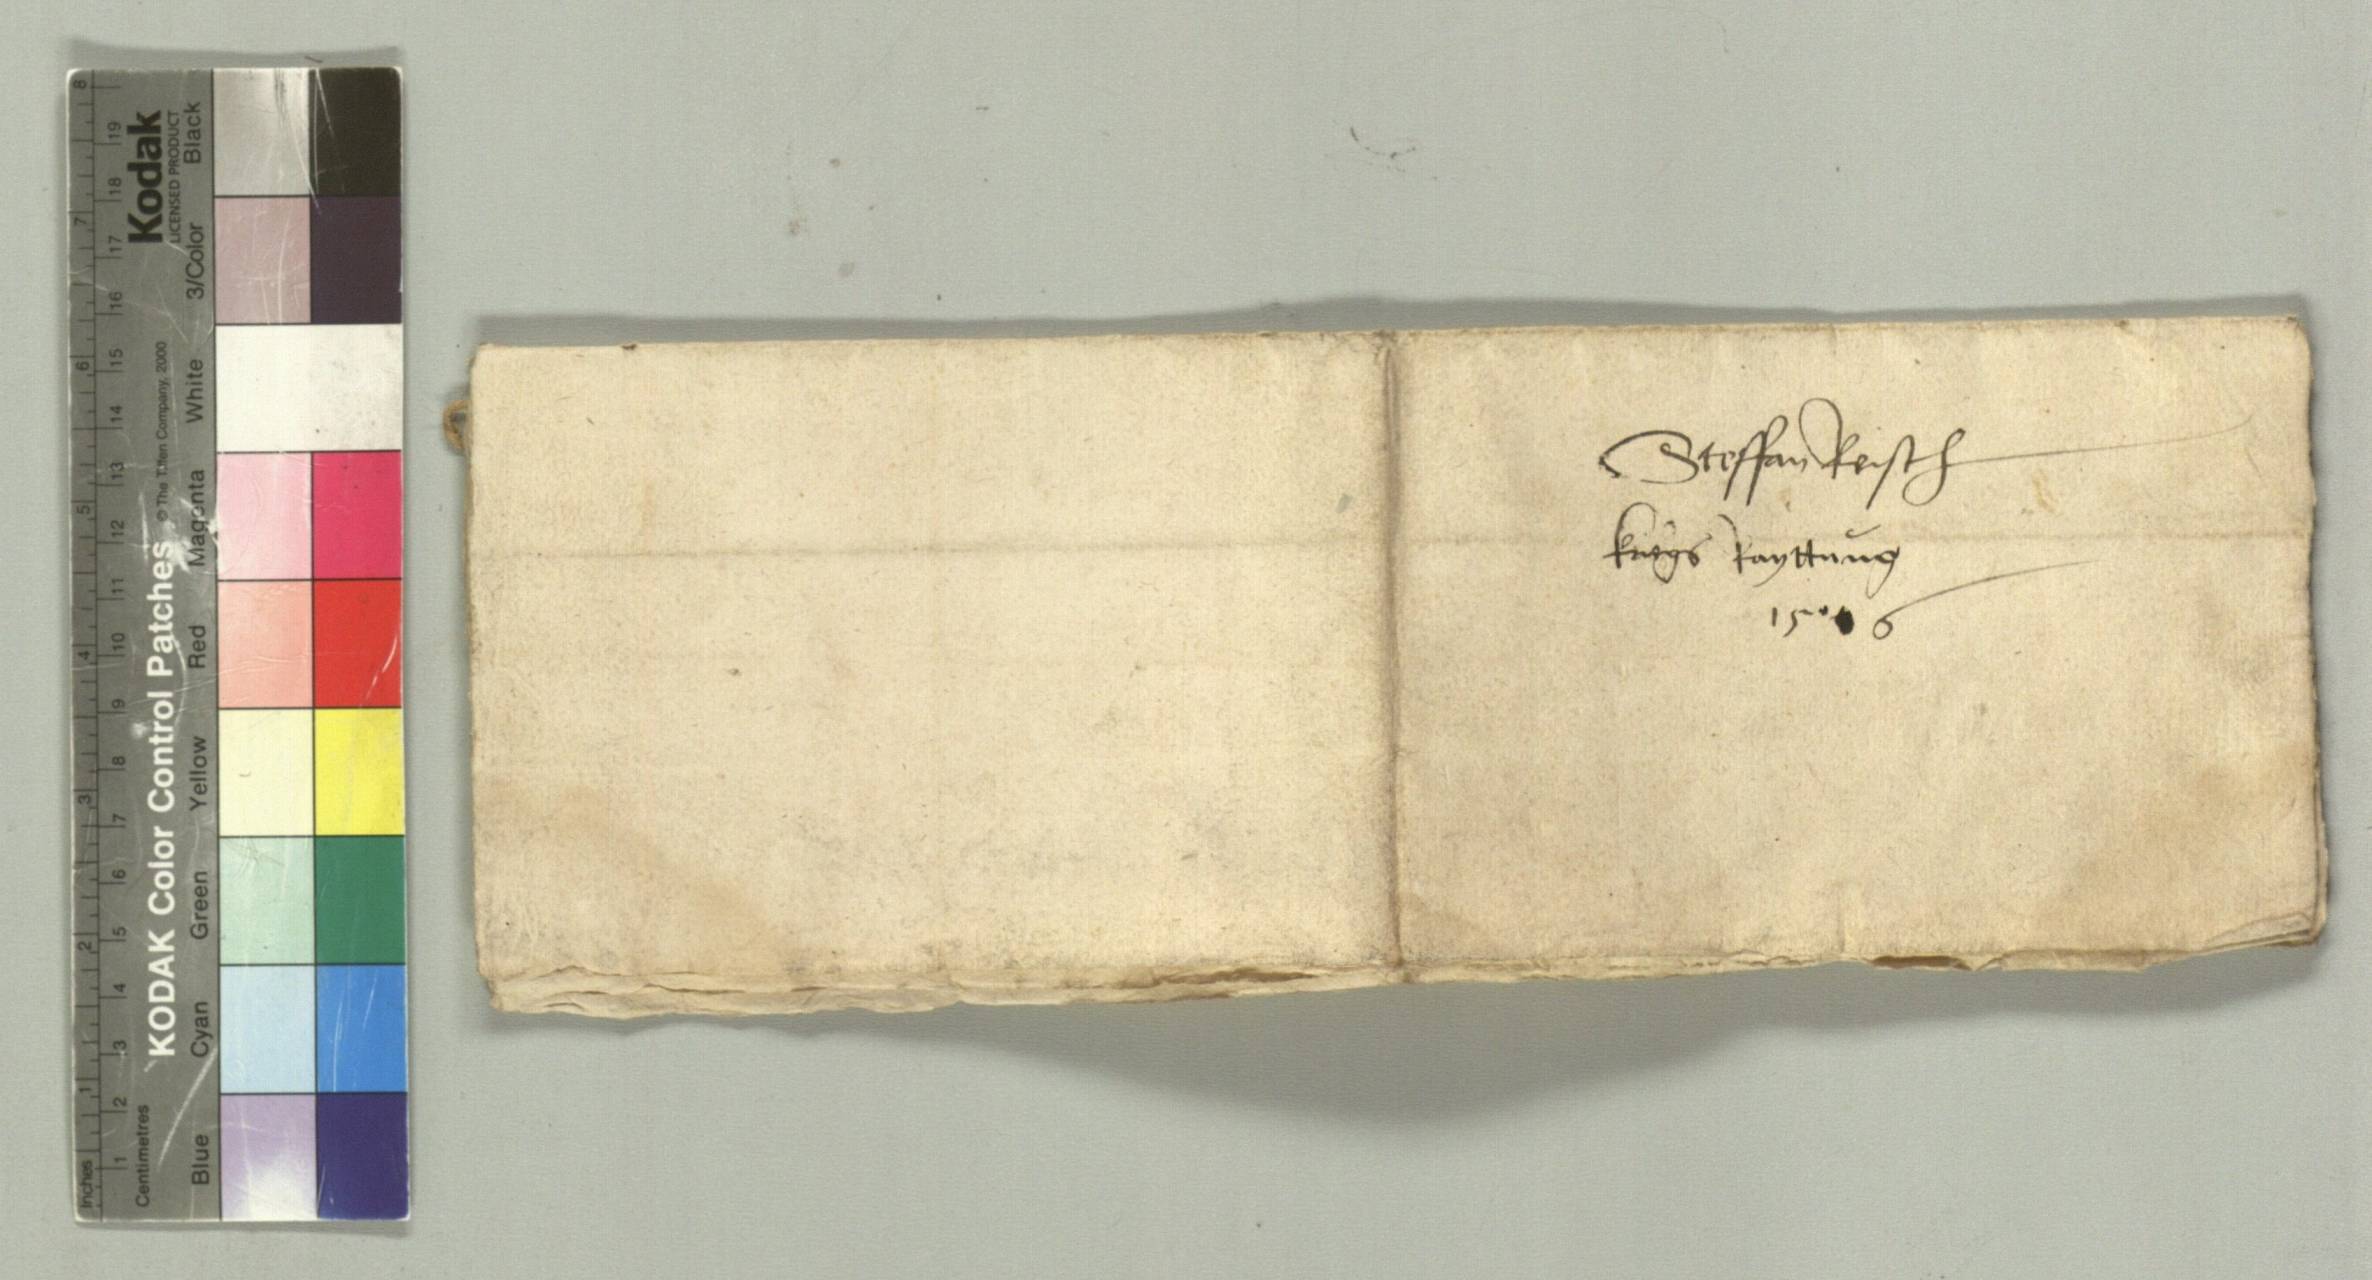 Steffan Reisch
kriegs Rayttung
15 6
KODAK Color Control Patches
© The Tiffen Company, 2000
Kodak
LICENSED PRODUCT
Inches
1
2
3
4
5
6
7
8
Centimetres
1
2
3
4
5
6
7
8
9
10
11
12
13
14
15
16
17
18
19
Blue
Cyan
Green
Yellow
Red
Magenta
White
3/Color
Black